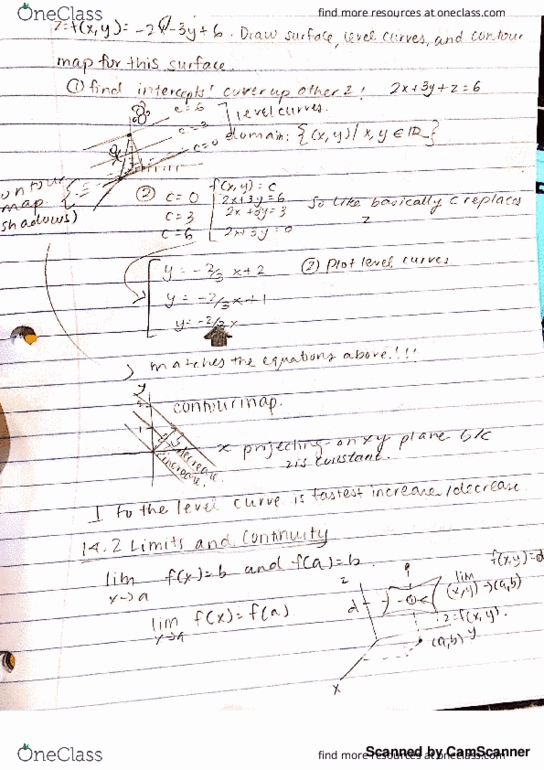 OneClass
find more resources at oneclass.com
z=f(x,y)= -2x-3y+6. Draw surface, level curves, and contour
map for this surface.
① find intercepts! cover up other 2! 2x+3y+z=6
c=6
level curves.
c=3
c=0
domain: {(x,y)| x,y ∈ ℝ}
contour
map
(shadows)
② f(x,y)=c
c=0 2x+3y=6
c=3 2x+3y=3
c=6 2x+3y=0
So like basically c replaces
z
y= -2/3 x+2 ② plot level curves
y= -2/3x+1
y= -2/3x
matches the equations above!!!
y
contour map.
x projecting on xy plane b/c
z is constant.
z decrease
z increase.
⊥ to the level curve is fastest increase/decrease
14.2 Limits and Continuity
lim f(x)=b and f(a)=b.
x→a
lim f(x)=f(a)
x→a
z
d
lim f(x,y)=d
(x,y)→(a,b)
z=f(x,y).
(a,b) y
x
OneClass
find more resources at oneclass.com
Scanned by CamScanner